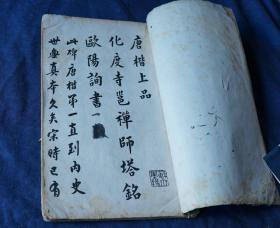 唐楷上品
化度寺邕禪師塔銘
歐陽詢書
此碑唐楷第一直到内史
世無真本久矣宋時已有